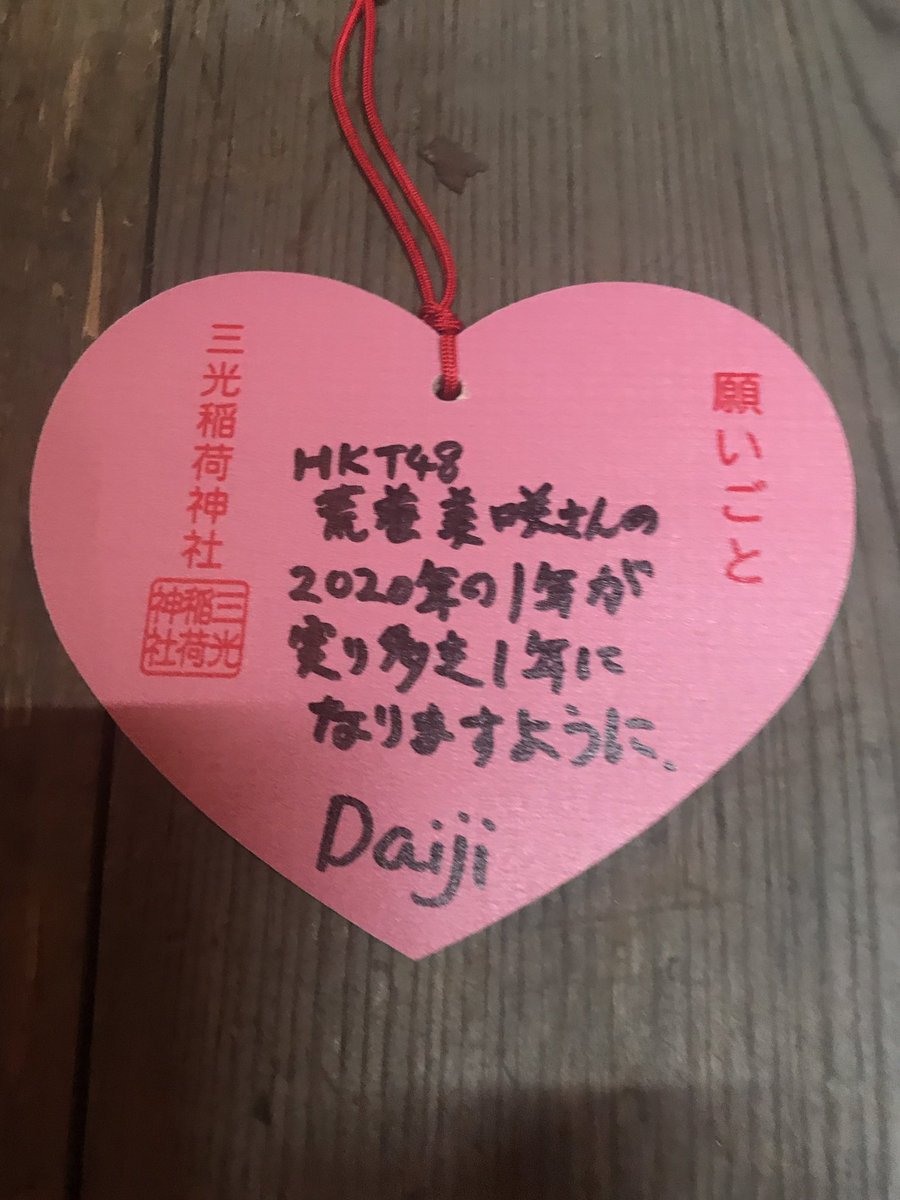 願いごと
HKT48
荒巻美咲さんの
2020年の1年が
実り多き1年に
なりますように.
Daiji
三光稲荷神社
三光
稲荷
神社